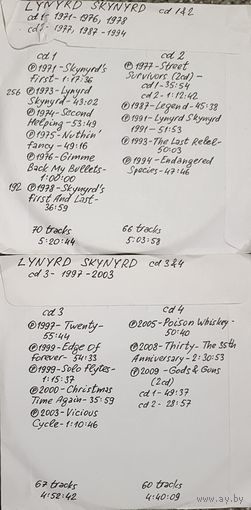 LYNYRD SKYNYRD cd 1&2
cd 1- 1971-1976, 1978
cd 2- 1977, 1987-1994
cd 1
Ⓟ1971-Skynyrd's
First-1:17:36
256 Ⓟ1973-Lynyrd
Skynyrd-43:02
Ⓟ1974-Second
Helping-53:49
Ⓟ1975-Nuthin'
fancy-49:16
Ⓟ1976-Gimme
Back My Bullets-
1:00:00
192 Ⓟ1978-Skynyrd's
First And Last-
36:59
70 tracks
5:20:44
cd 2
Ⓟ1977-Street
Survivors (2cd)-
cd 1-35:54
cd 2-1:12:42
Ⓟ1987-Legend-45:38
Ⓟ1991-Lynyrd Skynyrd
1991-51:53
Ⓟ1993-The Last Rebel-
50:03
Ⓟ1994-Endangered
Species-47:46
66 tracks
5:03:58
LYNYRD SKYNYRD cd 3&4
cd 3- 1997-2003
cd 3
Ⓟ1997-Twenty-
55:44
Ⓟ1999-Edge Of
Forever-54:33
Ⓟ1999-Solo Flytes-
1:15:37
Ⓟ2000-Christmas
Time Again-35:59
Ⓟ2003-Vicious
Cycle-1:10:46
67 tracks
4:52:42
cd 4
Ⓟ2005-Poison Whiskey-
50:40
Ⓟ2008-Thirty-The 35th
Anniversary-2:30:53
Ⓟ2009-Gods & Guns
(2cd)
cd 1-49:37
cd 2-28:57
60 tracks
4:40:09
www.ay.by